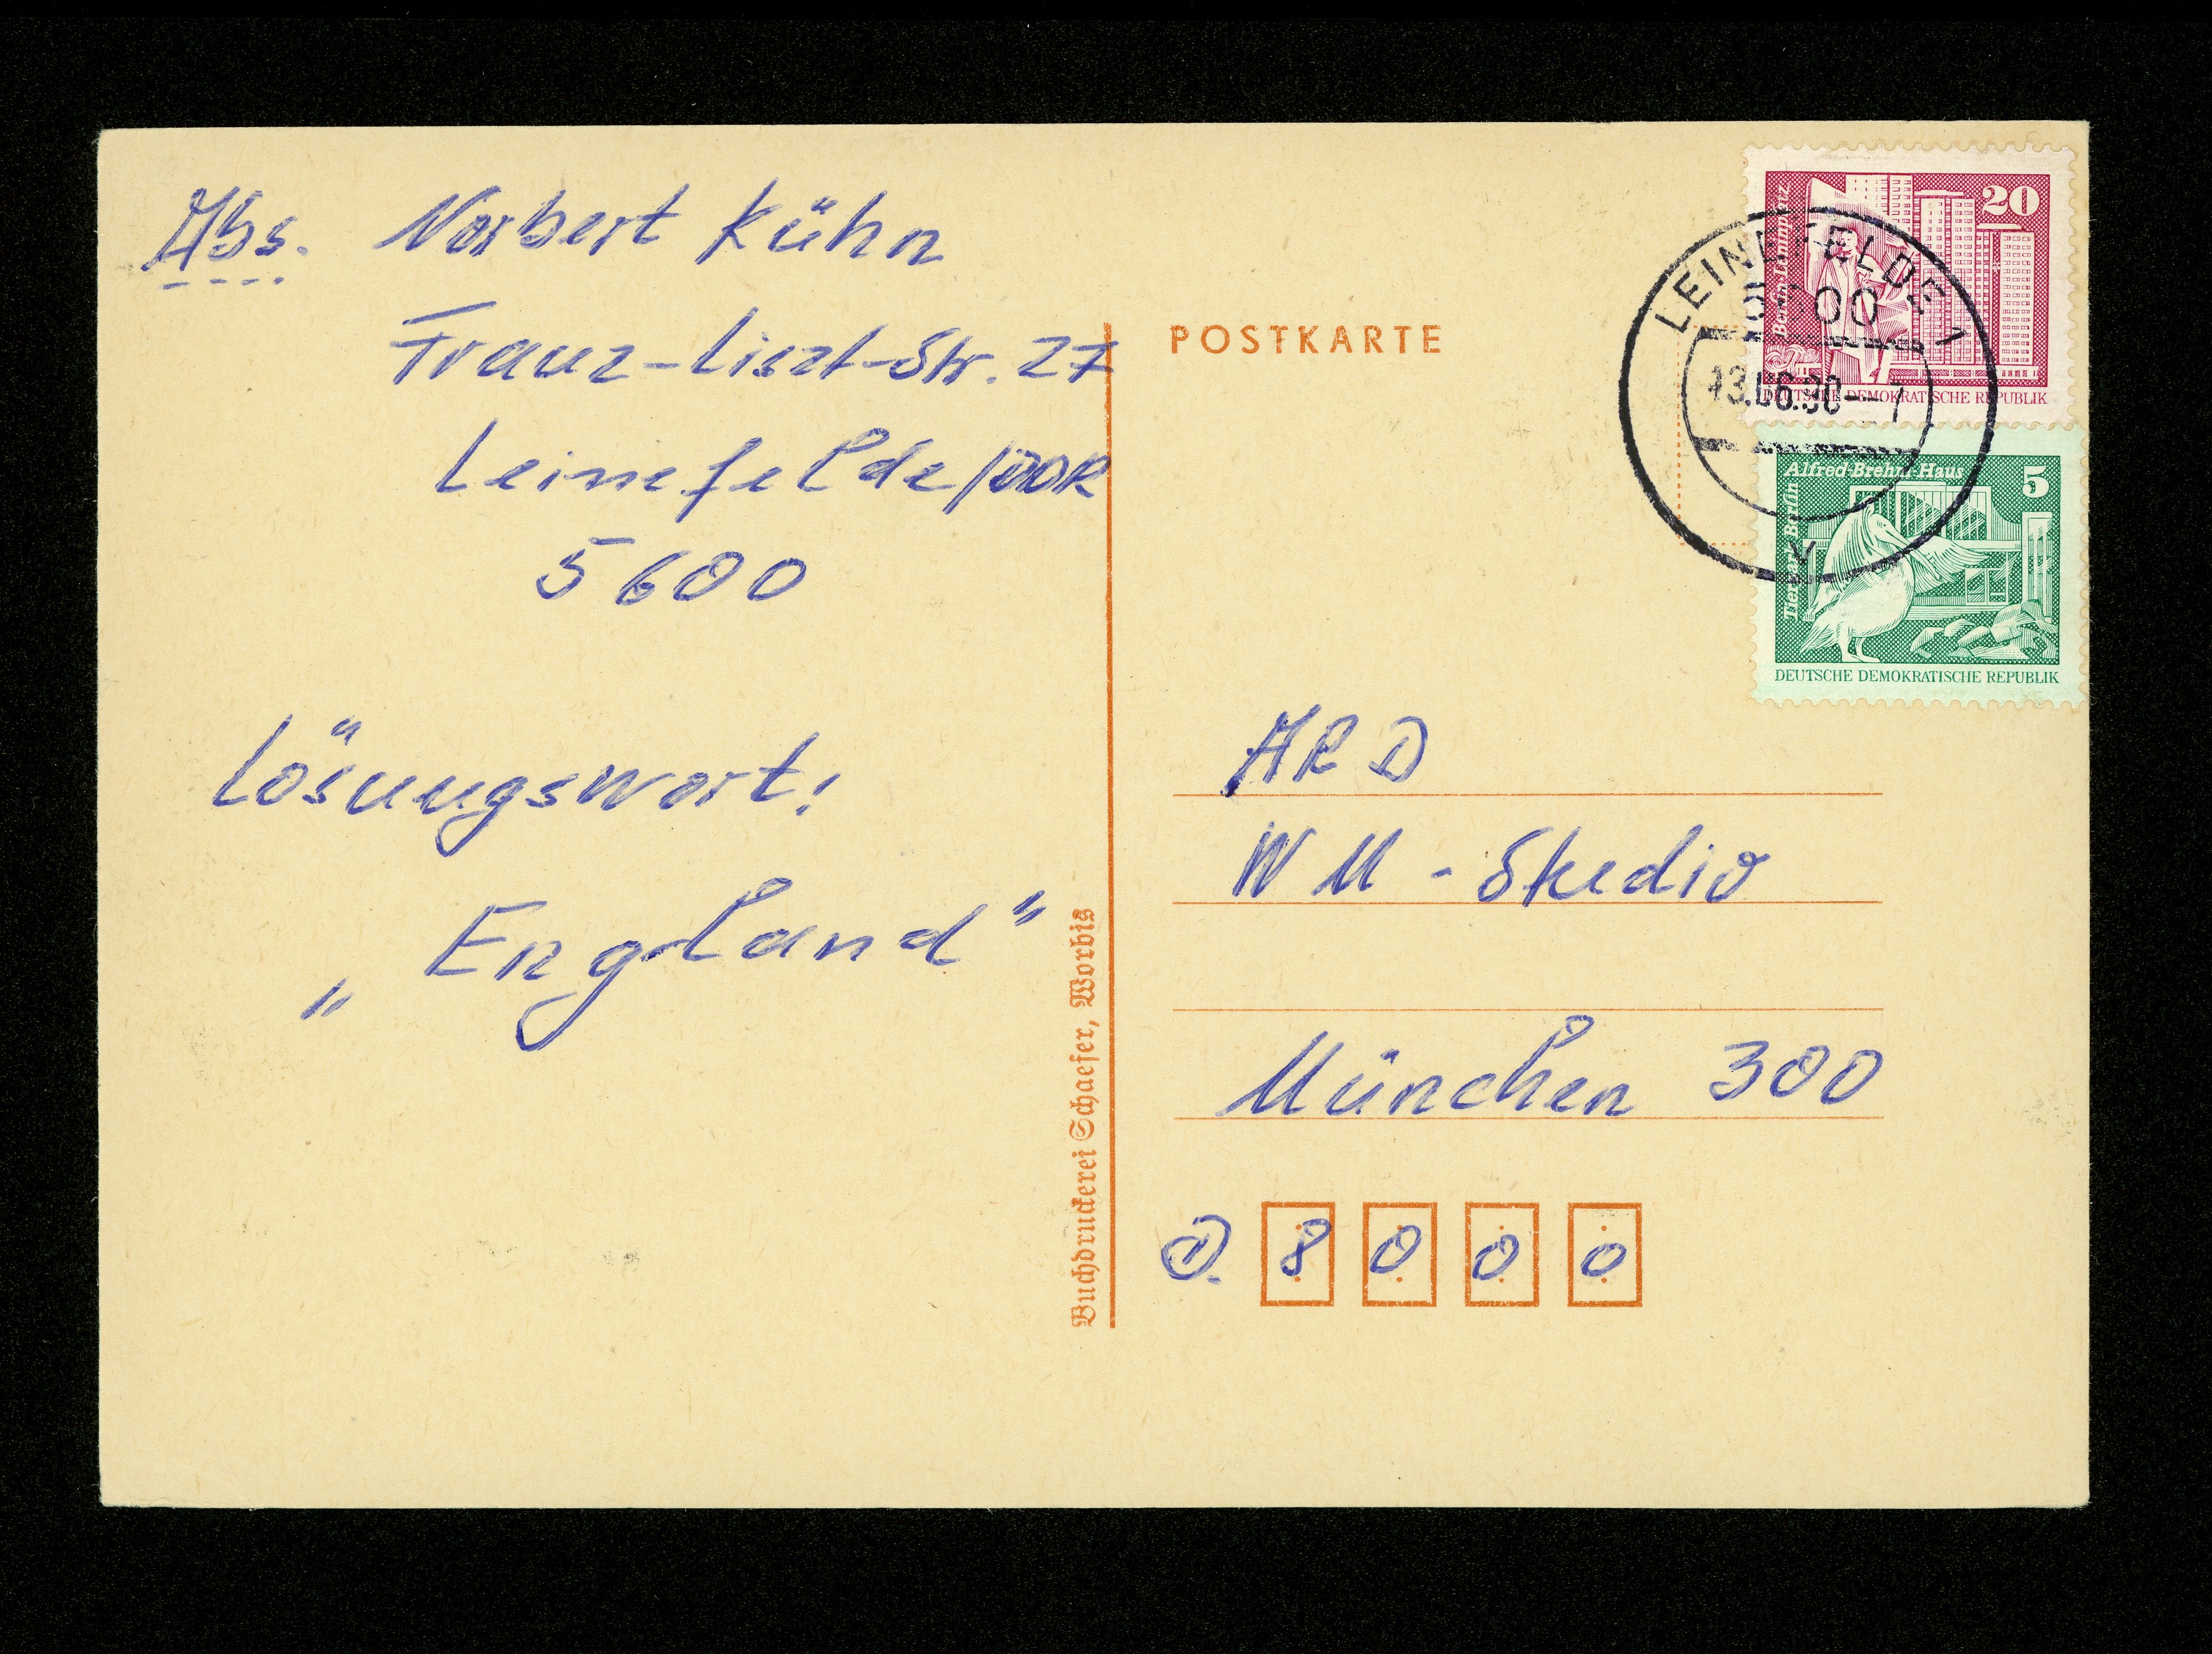 Abs. Norbert Kühn
Franz-Liszt-Str. 27
Leinefelde/DDR
5600
Lösungswort:
„England"
Buchdruckerei Schaefer, Worbis
POSTKARTE
20
Berlin-Leninplatz
DEUTSCHE DEMOKRATISCHE REPUBLIK
LEINEFELDE 1
5600
13.06.90--
Alfred-Brehm-Haus
5
Tierpark Berlin
DEUTSCHE DEMOKRATISCHE REPUBLIK
ARD
WM-Studio
München 300
D. 8000